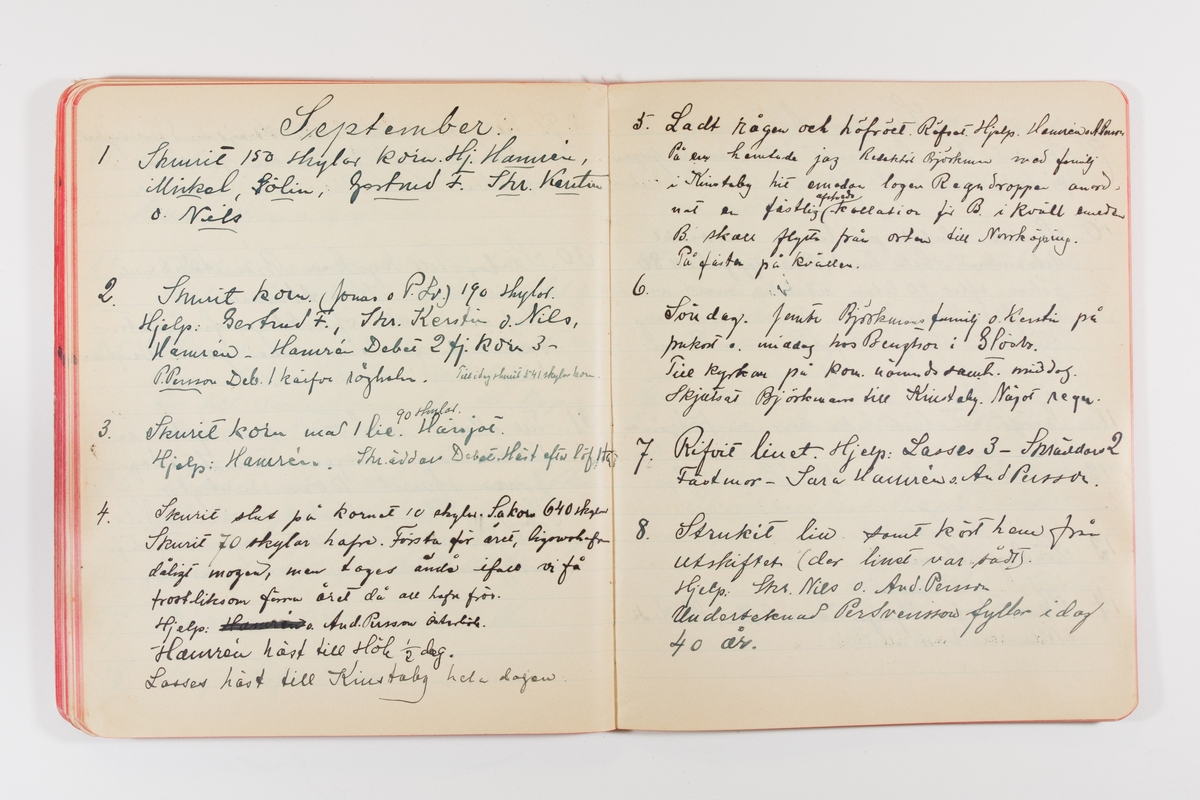 September.
1 Skurit 150 skylar korn. Hj. Hamrén,
Mickel, Gölin, Gertrud F. Skr. Kerstin
o. Nils
2. Skurit korn. (Jonas o P. Lv.) 190 skylar.
Hjelp: Gertrud F., Skr. Kerstin o. Nils,
Hamrén – Hamrén Debet 2 fj. korn 3 –
P. Persson Deb. 1 kärfve råghalm. Tills idag skurit 541 skylar korn.
90 skylar.
3. Skurit korn med 1 lie. Hårsjöt.
Hjelp: Hamrén. Skräddar Debet. Häst efter löf
4. Skurit slut på kornet 10 skylar. S:a korn 640 skylar
Skurit 70 skylar hafre. Första för året,
dåligt mogen, men tages ändå ifall vi få
frost liksom förra året då all hafre frös.
Hjelp: Hamrén o. And. Persson
Hamrén häst till Höh ½ dag.
Lasses häst till Kinstaby hela dagen.
5. Ladt rågen och höfröet. Räfsat. Hjelp. Hamrén o A Persson
På em hemtade jag Redaktör Björkman med familj
i Kinstaby hit emedan logen Regndroppen anord-
afskeds
nat en festlig kollation för B. i kväll emedan
B. skall flytta från orten till Norrköping.
På festen på kvällen.
6.
Söndag. Jemte Björkmans familj o. Kerstin på
frukost o. middag hos Bengtsson i
Till kyrkan på kom. nämndssamt. middag.
Skjutsat Björkmans till Kinstaby. Något regn.
7. Rifvit linet. Hjelp: Lasses 3 – Skräddars 2
Fastmor – Sara Hamrén o. And Persson.
8. Strukit lin samt kört hem från
utskiftet (der linet var sådt).
Hjelp: Skr. Nils o. And. Persson
Undertecknad Per Svensson fyller i dag
40 år.